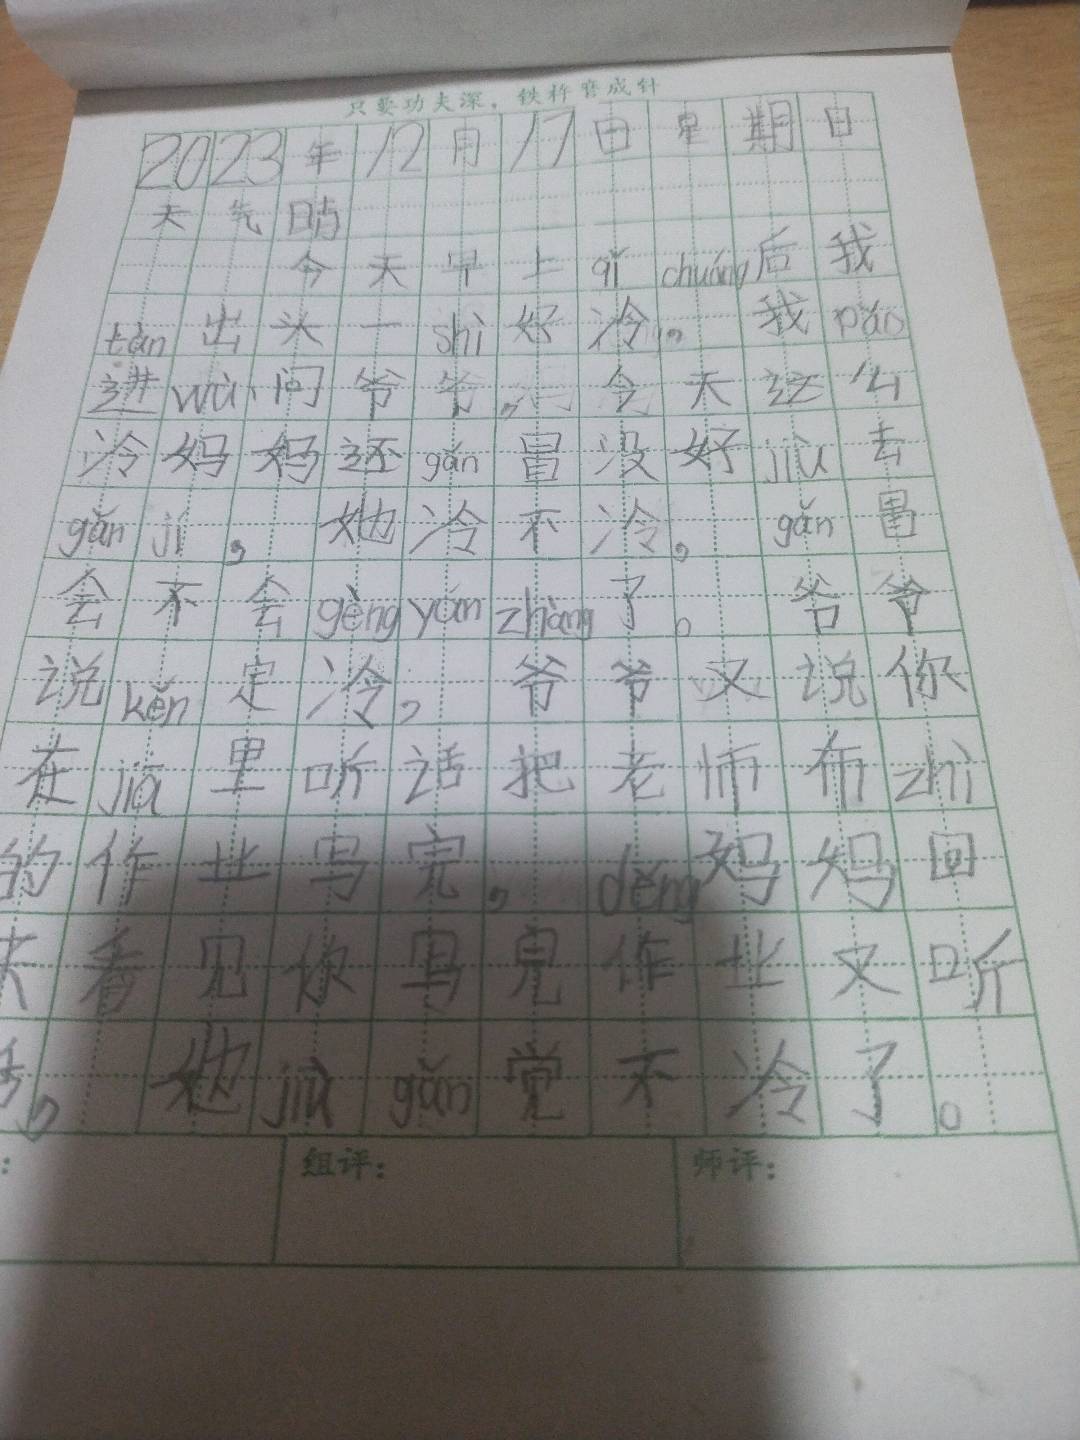 只要功夫深，铁杵磨成针
2023年12月17日星期日
天气晴
今天早上qǐ chuáng后我
tàn出头一shì好冷，我pǎo
进wū问爷爷，今天这么
冷妈妈还gǎn冒没好jiù去
gǎn jí，她冷不冷，gǎn冒
会不会gèng yán zhòng了。爷爷
说kěn定冷，爷爷又说你
在jiā里听话把老师布zhì
的作业写完，děng妈妈回
来看见你写完作业又听
话，她jiù gǎn觉不冷了。
：
组评：
师评：